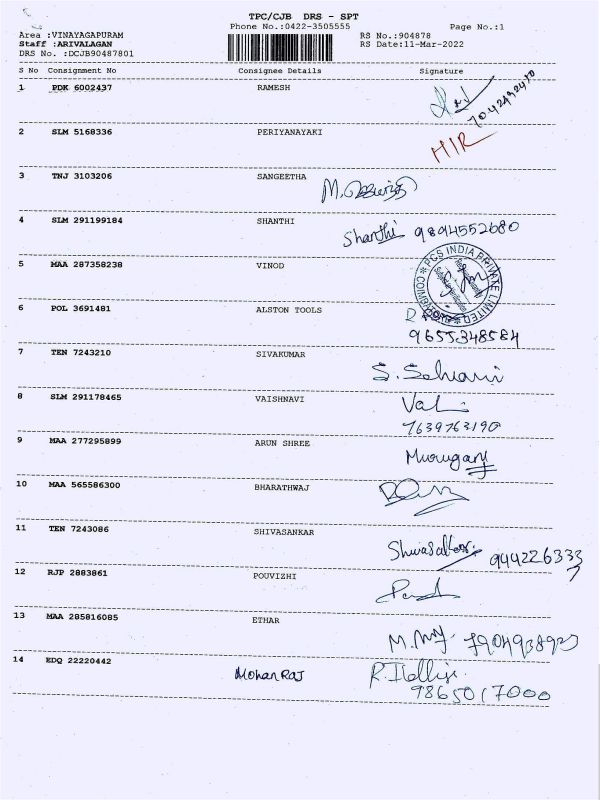 TPC/CJB DRS - SPT
Phone No.:0422-3505555 Page No.:1
Area :VINAYAGAPURAM RS No.:904878
Staff :ARIVALAGAN RS Date:11-Mar-2022
DRS No. :DCJB90487801
S No Consignment No Consignee Details Signature
1 PDK 6002437 RAMESH 7042492410
2 SLM 5168336 PERIYANAYAKI HIR
3 TNJ 3103206 SANGEETHA
4 SLM 291199184 SHANTHI Shanthi 9894552680
5 MAA 287358238 VINOD
PCS INDIA PRIVATE LIMITED
6 POL 3691481 ALSTON TOOLS
9655348584
7 TEN 7243210 SIVAKUMAR
8 SLM 291178465 VAISHNAVI
7639763190
9 MAA 277295899 ARUN SHREE Murugan
10 MAA 565586300 BHARATHWAJ
11 TEN 7243086 SHIVASANKAR
9442263337
12 RJP 2883861 POUVIZHI
13 MAA 285816085 ETHAR
14 EDQ 22220442 Mohan Raj
9865017000